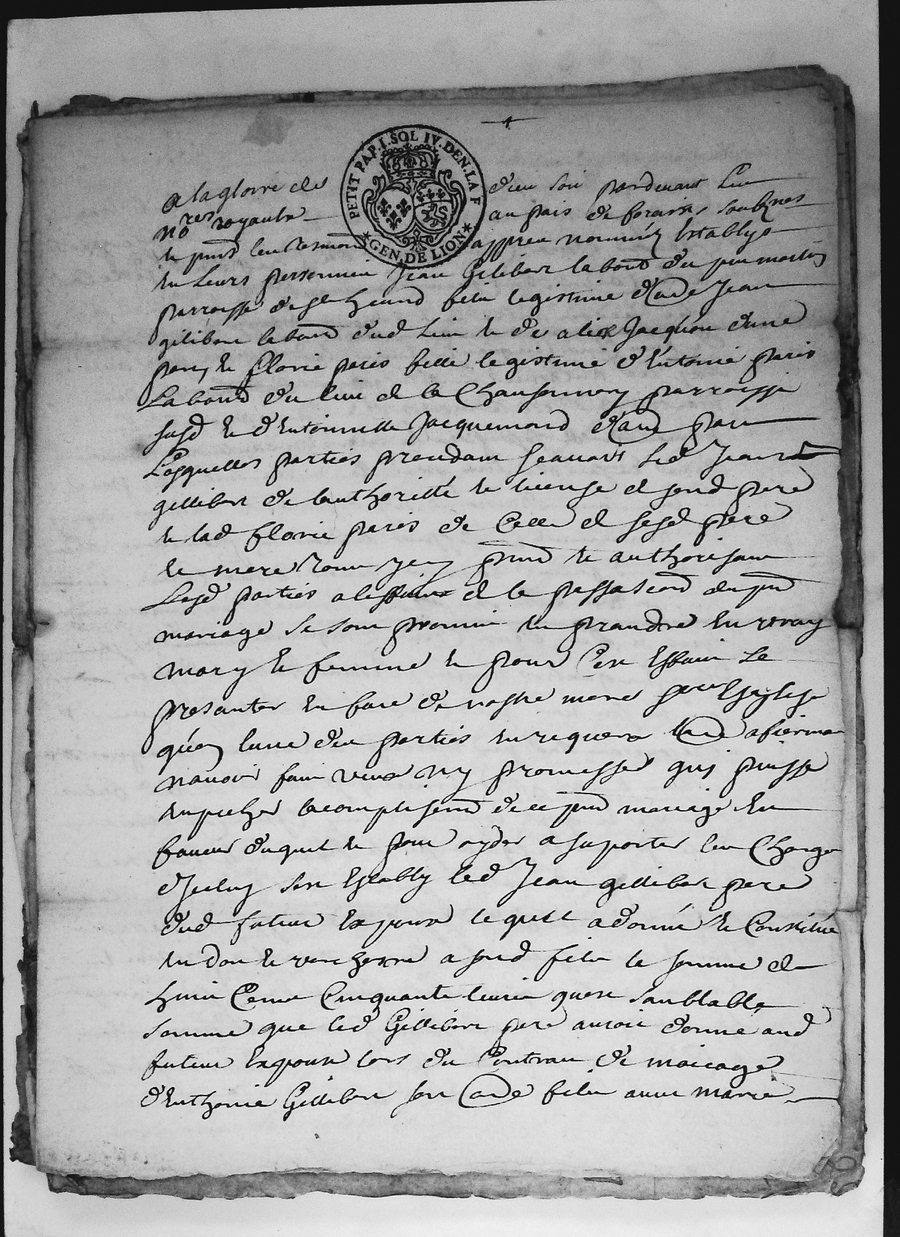 PETIT PAP. I. SOL IV. DEN. LA F
GEN. DE LION
A la gloire de dieu soit pardevant Les
nores royaulx au pais de forais soubznes
et puis les tesmoins apprez nommez establys
en leurs personnes Jean Gilibert labour du puy martin
parroisse de st heand fils legistime d'autre Jean
gilibert labour dud lieu et de alix Jacquon d'une
part, et florie paris fille legistime d'Entoine paris
Labour du lieu de la Chausonnery parroisse
susd et d'Entoinette Jacquemond d'au part
Lesquelles parties prendam sçauoir led Jean
gillibert de lauthoritté et license de sond pere
et lad florie paris de celle de sesd pere
et mere tous icy pnts et authorisant
Lesd parties a leffaict de la passation du pnt
mariage se sont promis en prandre en vray
mary et femme et pour cest Effaict se
presanter en face de nostre mere ste Esglise
quan lune des parties en requera lau afirmant
nauoir faict veux ny promesses qui puisse
enpecher lacomplisemt de ce pnt mariage En
faueur duquel et pour ayder a suporter les Charges
d'Iceluy sest Establly led Jean gillibert pere
dud futeur Expoux lequel a donné et Constitué
en don et verchere a sond fils la somme de
huict Cent Cinquante liures quest sanblable
somme que led Gillibert pere auroit donné aud
futeur Expoux lors du Contrau de mariage
d'Enthonie Gillibert son au fils auec marie